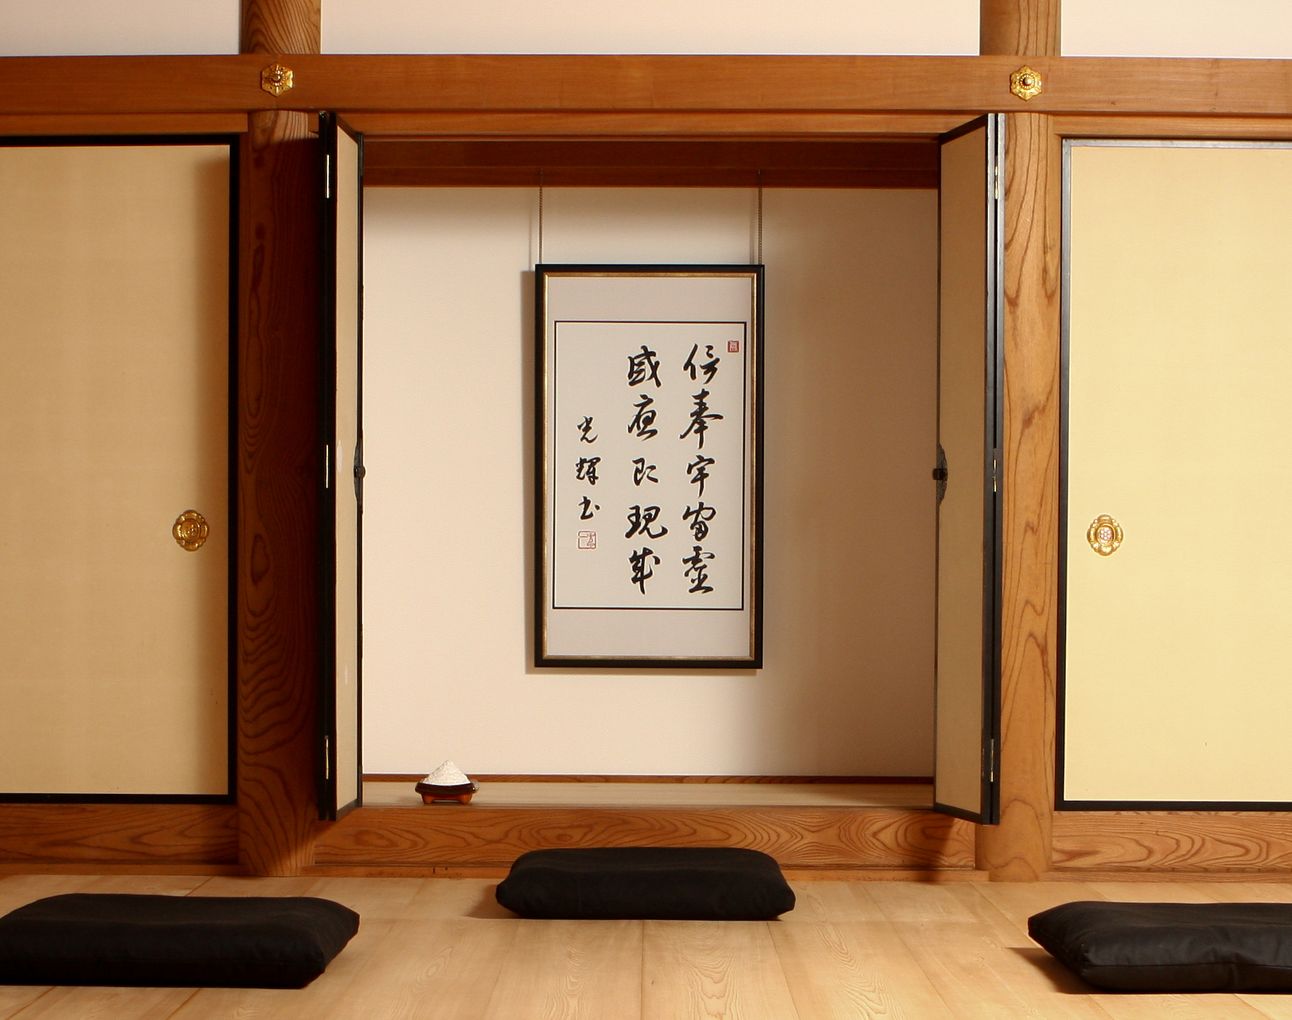 信奉宇宙霊
感應即現成
光輝書